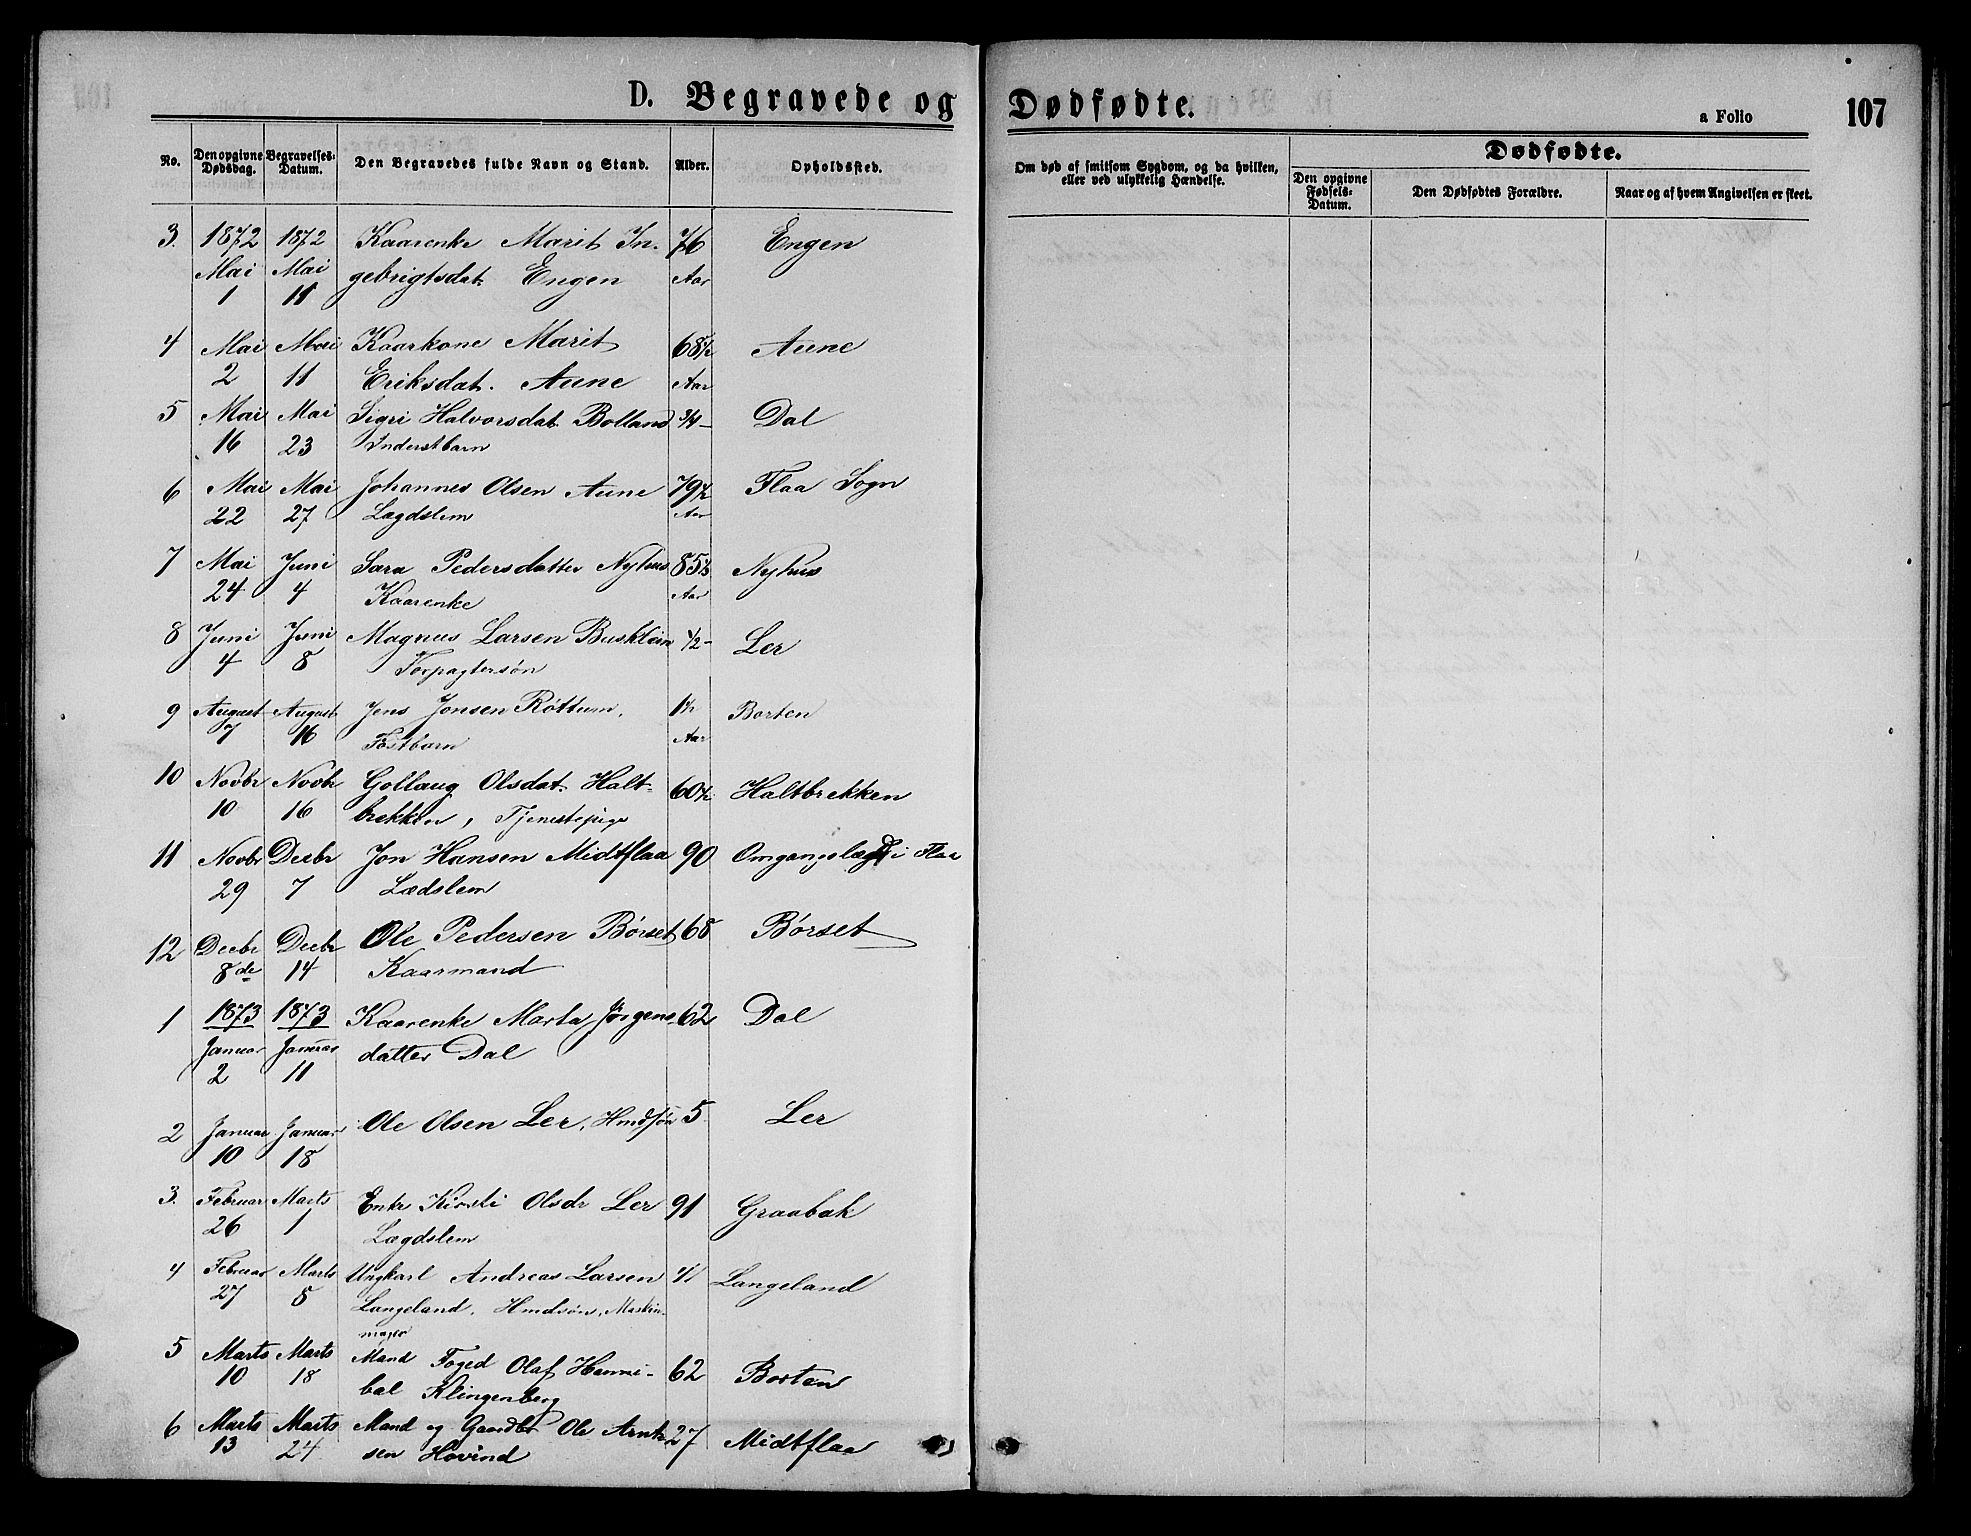 D. Begravede og Dødfødte.
a Folio
107
No.
Den opgivne Dødsdag.
Begravelses-Datum.
Den Begravedes fulde Navn og Stand.
Alder.
Opholdssted.
Om død af smitsom Sygdom, og da hvilken,
eller ved ulykkelig Hændelse.
Dødfødte.
Den opgivne Fødsels-Datum.
Den Dødfødtes Forældre.
Naar og af hvem Angivelsen er skeet.
3. 1872 1872 Kaarenke Marit In- 76 Engen
Mai Mai gebrigtsdat. Engen Aar
1 11
4 Mai Mai Kaarkone Marit 68½ Aune
2 11 Eriksdat. Aune Aar
5 Mai Mai Sigri Halvorsdat. Bolland ¾- Dal
16 23 Inderstbarn
6 Mai Mai Johannes Olsen Aune 79½ Flaa Sogn
22 27 Lægdslem Aar
7 Mai Juni Sara Pedersdatter Nyhus 85½ Nyhus
24 4 Kaarenke Aar
8 Juni Juni Magnus Larsen Busklein ½- Ler
4 8 Forpagtersøn
9 August August Jens Jonsen Røttum, 1½ Borten
7 16 Fostbarn Aar
10 Novbr Novbr Gollaug Olsdat. Halt- 60½ Haltbrekken
10 16 brekken, Tjenestepige
11 Novbr Decbr Jon Hansen Midtflaa 90 Omgangslægd i Flaa
29 7 Lædslem
12 Decbr Decbr Ole Pedersen Børset 68 Børset
8de 14 Kaarmand
1 1873 1873 Kaarenke Marta Jørgens- 62 Dal
Januar Januar datter Dal
2 11
2 Januar Januar Ole Olsen Ler, Hmdsøn 5 Ler
10 18
3. Februar Marts Enke Kirsti Olsdr Ler 91 Graabak
26 1 Lægdslem
4 Februar Marts Ungkarl Andreas Larsen 41 Langeland
27 8 Langeland, Hmdsøn, Maskin-
mager
5 Marts Marts Mand Foged Olaf Hanni- 62 Borten
10 18 bal Klingenberg
6 Marts Marts Mand og Gaardbr Ole Arnt- 27 Midtflaa
13 24 sen Hovind